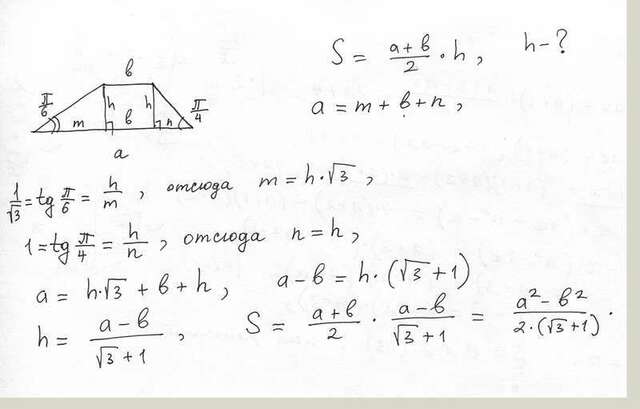 S = (a+в)/2 · h, h-?
a = m + в + n,
в
π/6
h
h
π/4
m
в
n
a
1/√3 = tg π/6 = h/m, отсюда m = h·√3,
1 = tg π/4 = h/n, отсюда n = h,
a = h√3 + в + h, a-в = h·(√3+1)
h = (a-в)/(√3+1), S = (a+в)/2 · (a-в)/(√3+1) = (a²-в²)/(2·(√3+1)).